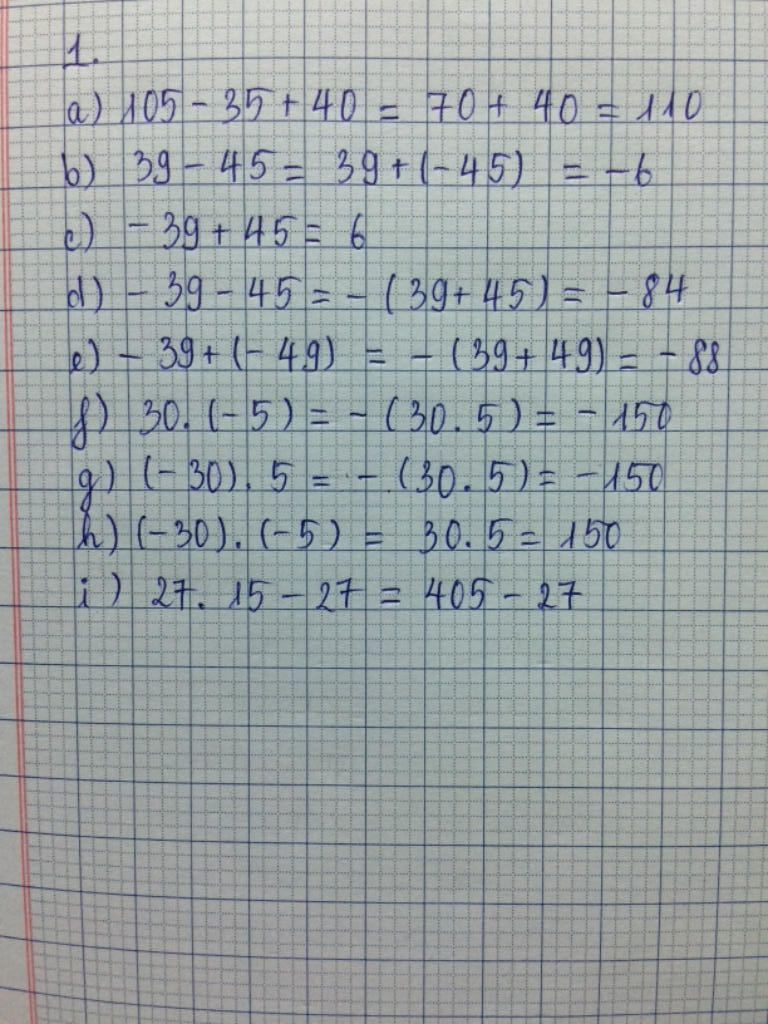 1.
a) 105 - 35 + 40 = 70 + 40 = 110
b) 39 - 45 = 39 + (- 45) = - 6
c) - 39 + 45 = 6
d) - 39 - 45 = - (39 + 45) = - 84
e) - 39 + (- 49) = - (39 + 49) = - 88
f) 30. (- 5) = - (30 . 5) = - 150
g) (- 30). 5 = - (30 . 5) = - 150
h) (- 30). (- 5) = 30. 5 = 150
i) 27. 15 - 27 = 405 - 27